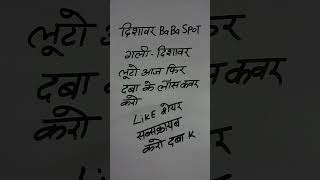 दिशावर BaBa SPOT
गली - दिशावर
लूटो आज फिर
दबा के लौस कवर
करो
LiKE शेयर
सब्सक्रायब
करो दबा K